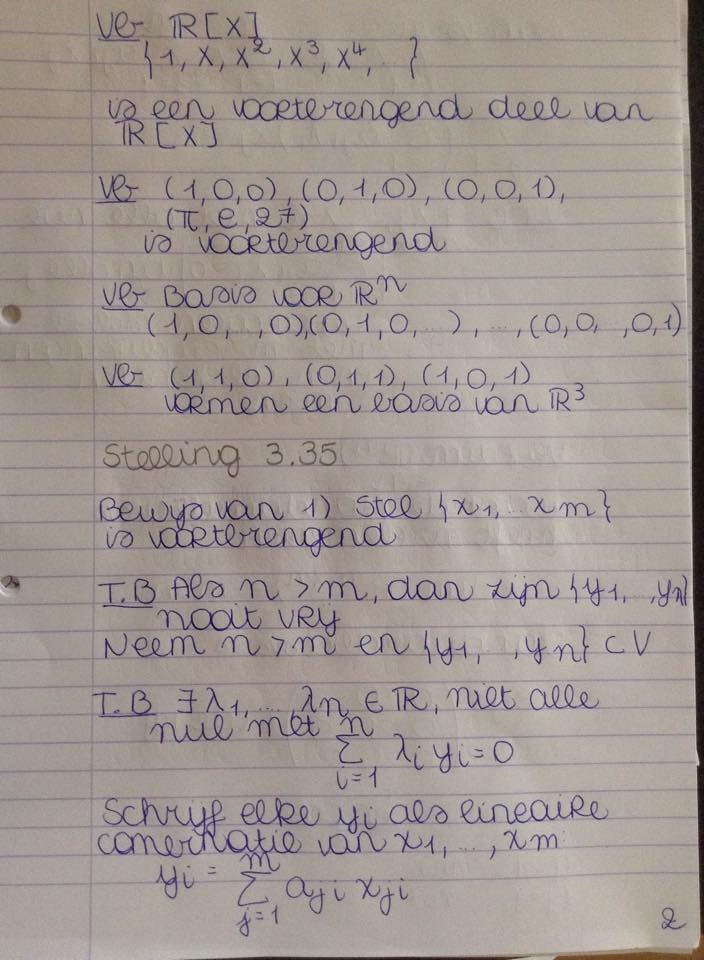 Vb ℝ[X]
{1, X, X², X³, X⁴, ...}
is een voortbrengend deel van
ℝ[X]
Vb (1,0,0), (0,1,0), (0,0,1),
(π, e, 27)
is voortbrengend
Vb Basis voor ℝⁿ
(1,0,..,0),(0,1,0,...), ..., (0,0,..,0,1)
Vb (1,1,0), (0,1,1), (1,0,1)
vormen een basis van ℝ³
Stelling 3.35
Bewijs van 1) Stel {x₁,...xₘ}
is voortbrengend
T.B Als n > m, dan zijn {y₁,..,yₙ}
nooit vrij
Neem n > m en {y₁,..,yₙ} ⊂ V
T.B ∃ λ₁,..., λₙ ∈ ℝ, niet alle
nul met n
∑ λᵢ yᵢ = 0
i=1
Schrijf elke yᵢ als lineaire
combinatie van x₁,...,xₘ:
yᵢ = m
∑ aⱼᵢ xⱼᵢ
j=1
2